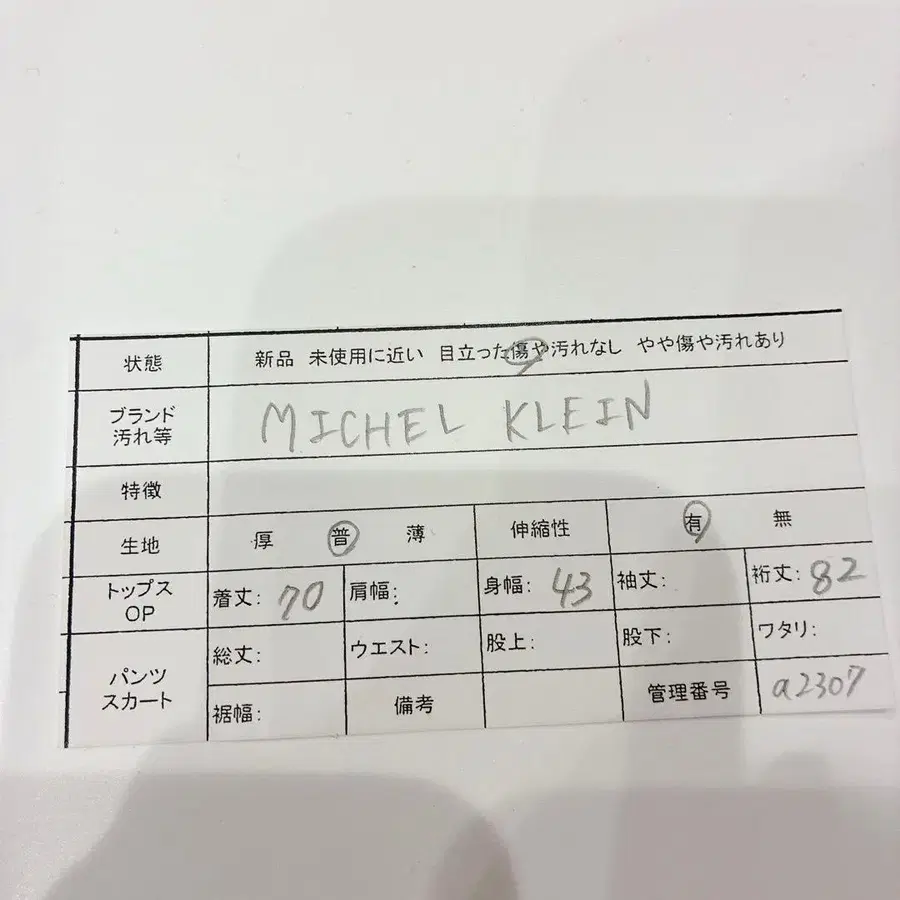 状態 新品 未使用に近い 目立った傷や汚れなし やや傷や汚れあり
ブランド
汚れ等 MICHEL KLEIN
特徴
生地 厚 普 薄 伸縮性 有 無
トップス
OP 着丈: 70 肩幅: 身幅: 43 袖丈: 裄丈: 82
パンツ
スカート 総丈: ウエスト: 股上: 股下: ワタリ:
裾幅: 備考 管理番号 a2307